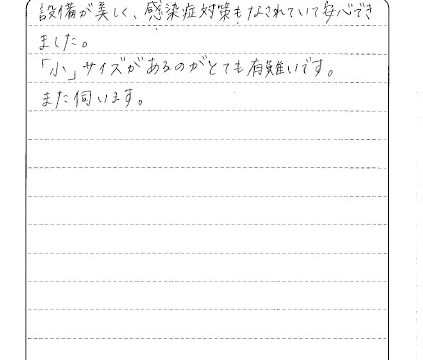 設備が美しく、感染症対策もなされていて安心でき
ました。
「小」サイズがあるのがとても有難いです。
また伺います。